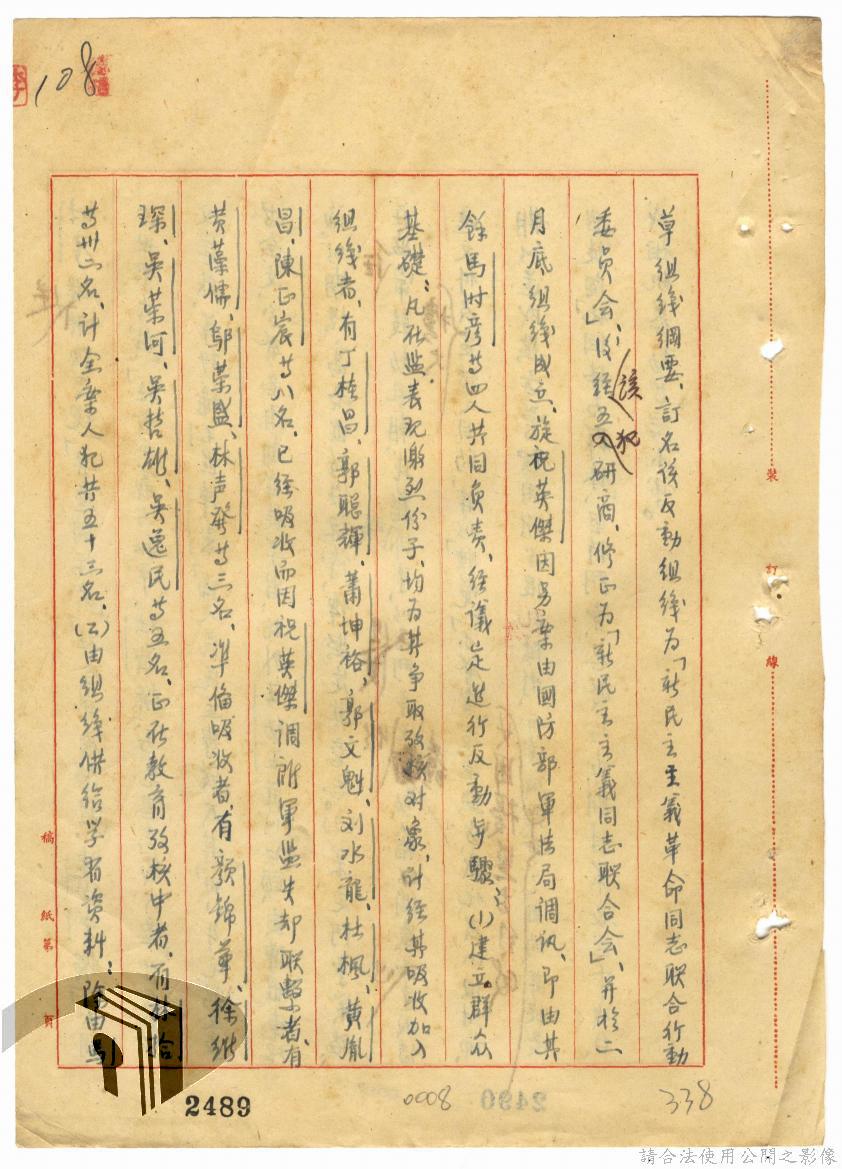 108
草組織綱要、訂名該反動組織為「新民主主義革命同志联合行動
委員会」、後經五該犯研商、修正為「新民主主義同志联合会」、并於二
月底組織成立、旋祝英傑因另案由國防部軍法局調訊、即由其
餘馬时彦等四人共同負責、經議定進行反動步驟：(1)建立群众
基礎：凡在监表现激烈份子、均为其争取攷核对象、計經其吸收加入
組織者、有丁桂昌、郭聪輝、蕭坤裕、郭文魁、刘水龍、杜楓、黄胤
昌、陳正宸等八名、已經吸收而因祝英傑調附軍监失却联繫者、有
黄藻儒、鄔荣盛、林声發等三名、準俻吸收者、有顏錦華、徐維
琛、吳荣河、吳哲雄、吳逸民等五名、正在教育攷核中者、有林拾
等卅二名、計全案人犯共五十三名、(2)由組織供給学習资料：除由馬
裝
訂
線
稿紙第 頁
2489
0008
338
請合法使用公開之影像